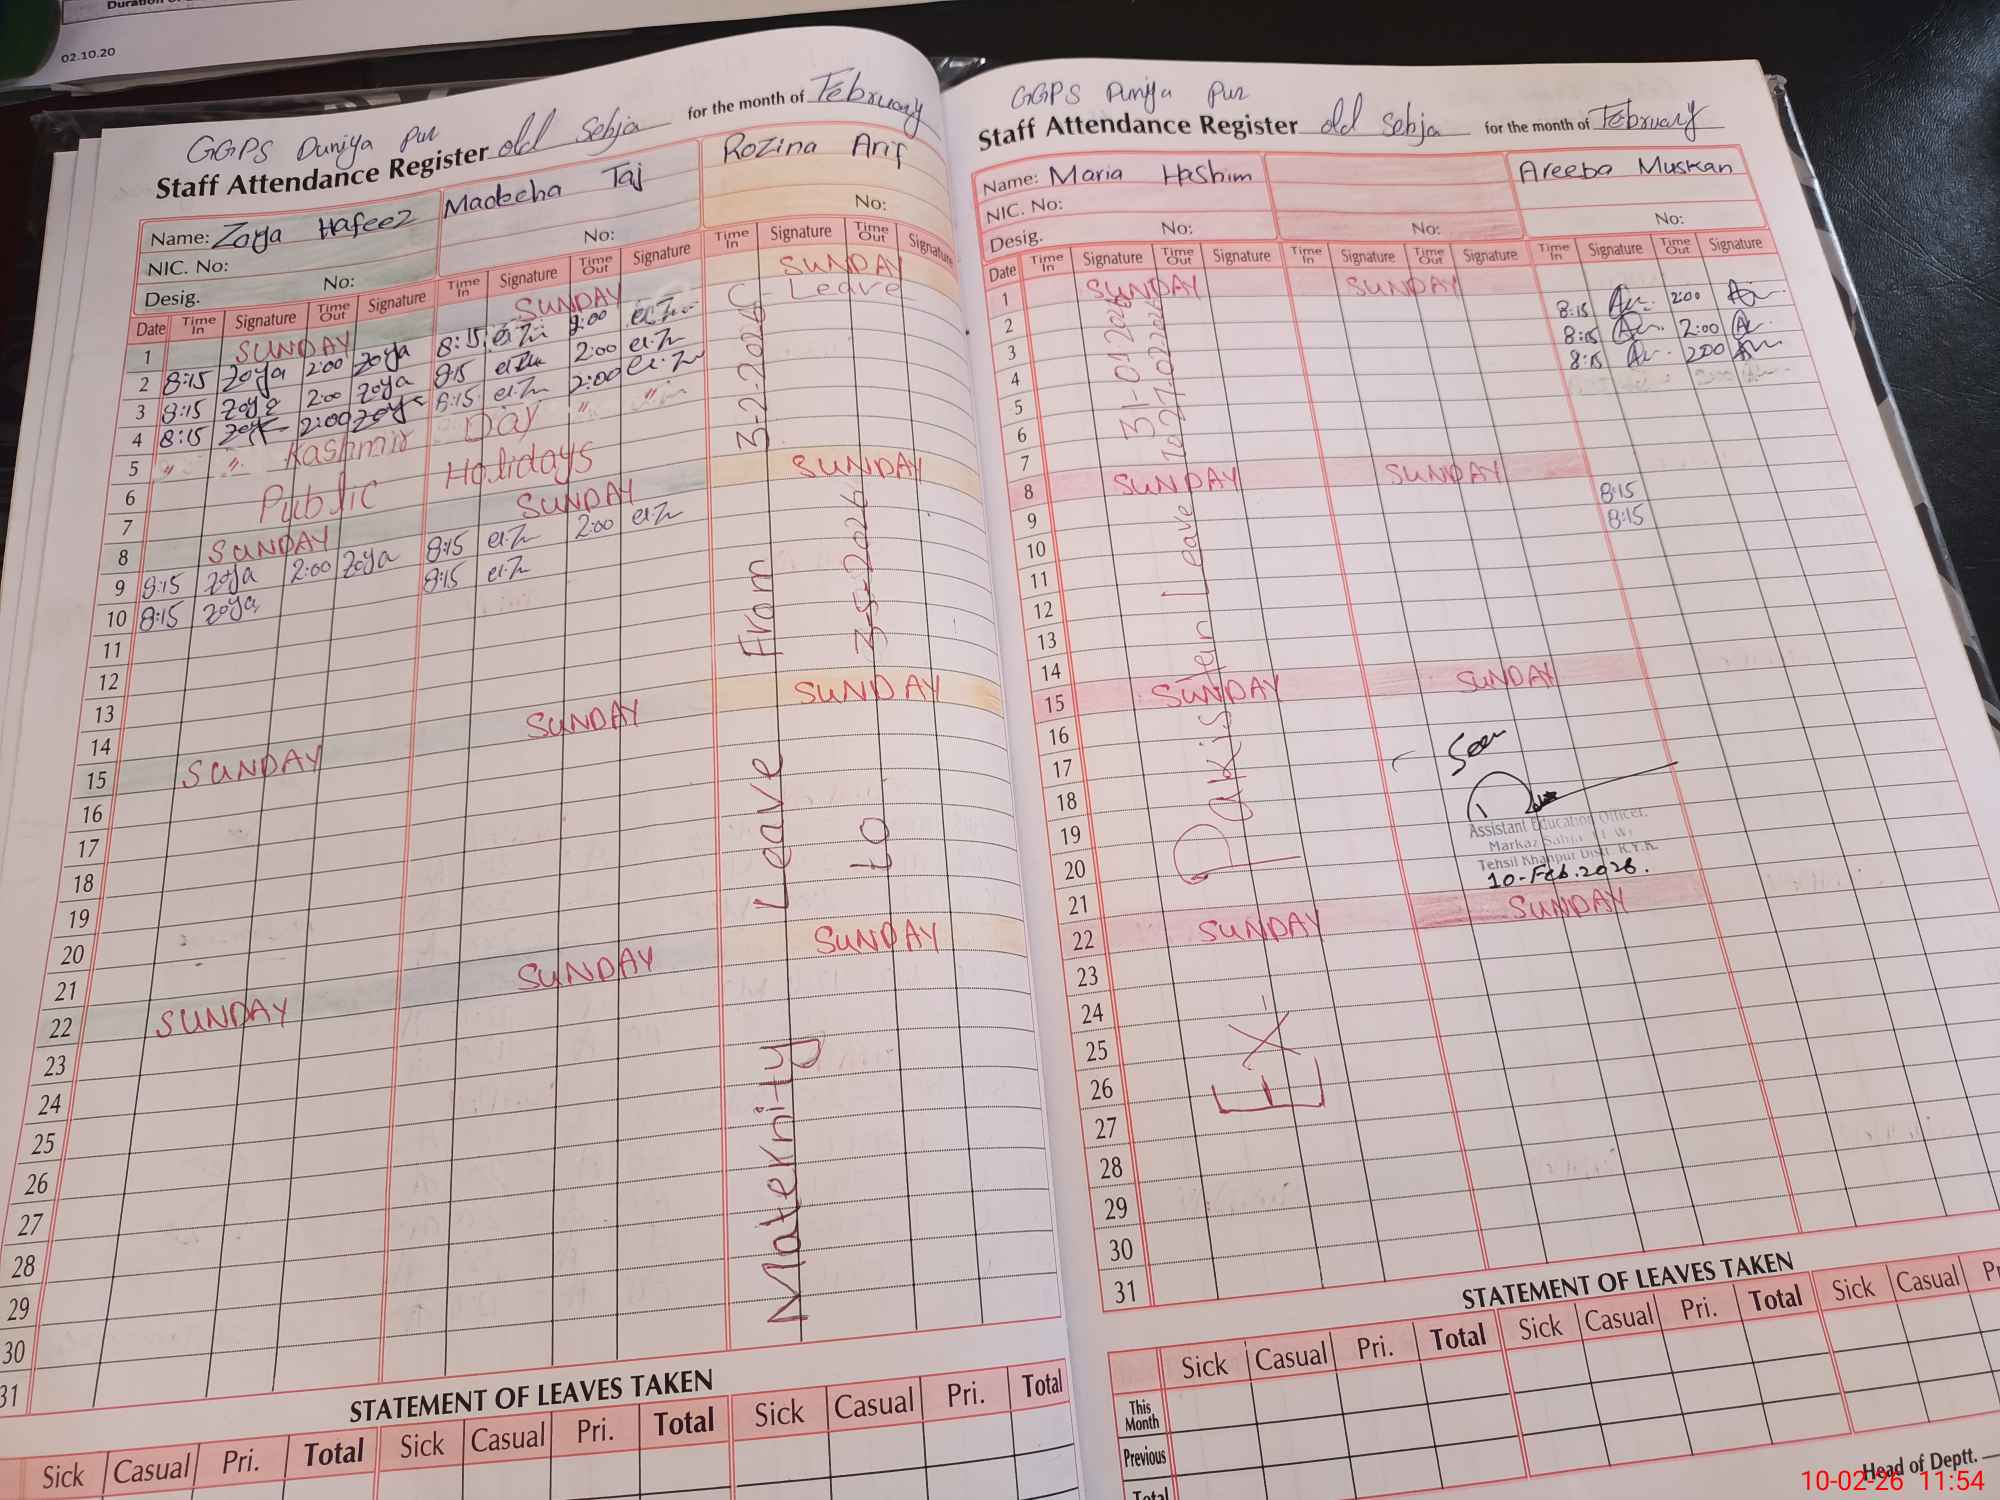 Duration of
02.10.20
GGPS Duniya Pur
Staff Attendance Register old Sehja for the month of February
Name: Zoya Hafeez Madeeha Taj Rozina Arif
NIC. No:
Desig. No: No: No:
Date Time In Signature Time Out Signature Time In Signature Time Out Signature Time In Signature Time Out Signature
1 SUNDAY SUNDAY SUNDAY
2 8:15 Zoya 2:00 Zoya 8:15 2:00 C- Leave
3 8:15 Zoya 2:00 Zoya 8:15 2:00
4 8:15 Zoya 2:00 Zoya 8:15 2:00
5 " " Kashmir Day " "
6 Public Holidays
7
8 SUNDAY SUNDAY SUNDAY
9 8:15 Zoya 2:00 Zoya 8:15 2:00
10 8:15 Zoya 8:15
11
12
13
14
15 SUNDAY SUNDAY SUNDAY
16
17
18
19
20
21
22 SUNDAY SUNDAY SUNDAY
23
24
25
26
27
28
29
30
31
Maternity Leave From 3-2-2026
to 3-5-2026
STATEMENT OF LEAVES TAKEN
Sick Casual Pri. Total Sick Casual Pri. Total Sick Casual Pri. Total
GGPS Duniya Pur
Staff Attendance Register old Sehja for the month of February
Name: Maria Hashim Areeba Muskan
NIC. No:
Desig. No: No: No:
Date Time In Signature Time Out Signature Time In Signature Time Out Signature Time In Signature Time Out Signature
1 SUNDAY SUNDAY
2 8:15 2:00
3 8:15 2:00
4 8:15 2:00
5
6
7
8 SUNDAY SUNDAY
9 8:15
10 8:15
11
12
13
14
15 SUNDAY SUNDAY
16
17
18
19
20
21
22 SUNDAY SUNDAY
23
24
25
26
27
28
29
30
31
EX- Pakistan Leave
31-01-2026
to 27-02-2026
Seen
Assistant Education Officer.
Markaz
Tehsil Khanpur Distt. R.Y.K.
10-Feb.2026.
STATEMENT OF LEAVES TAKEN
Sick Casual Pri. Total Sick Casual Pri. Total Sick Casual
This Month
Previous
Total
Head of Deptt.
10-02-26 11:54